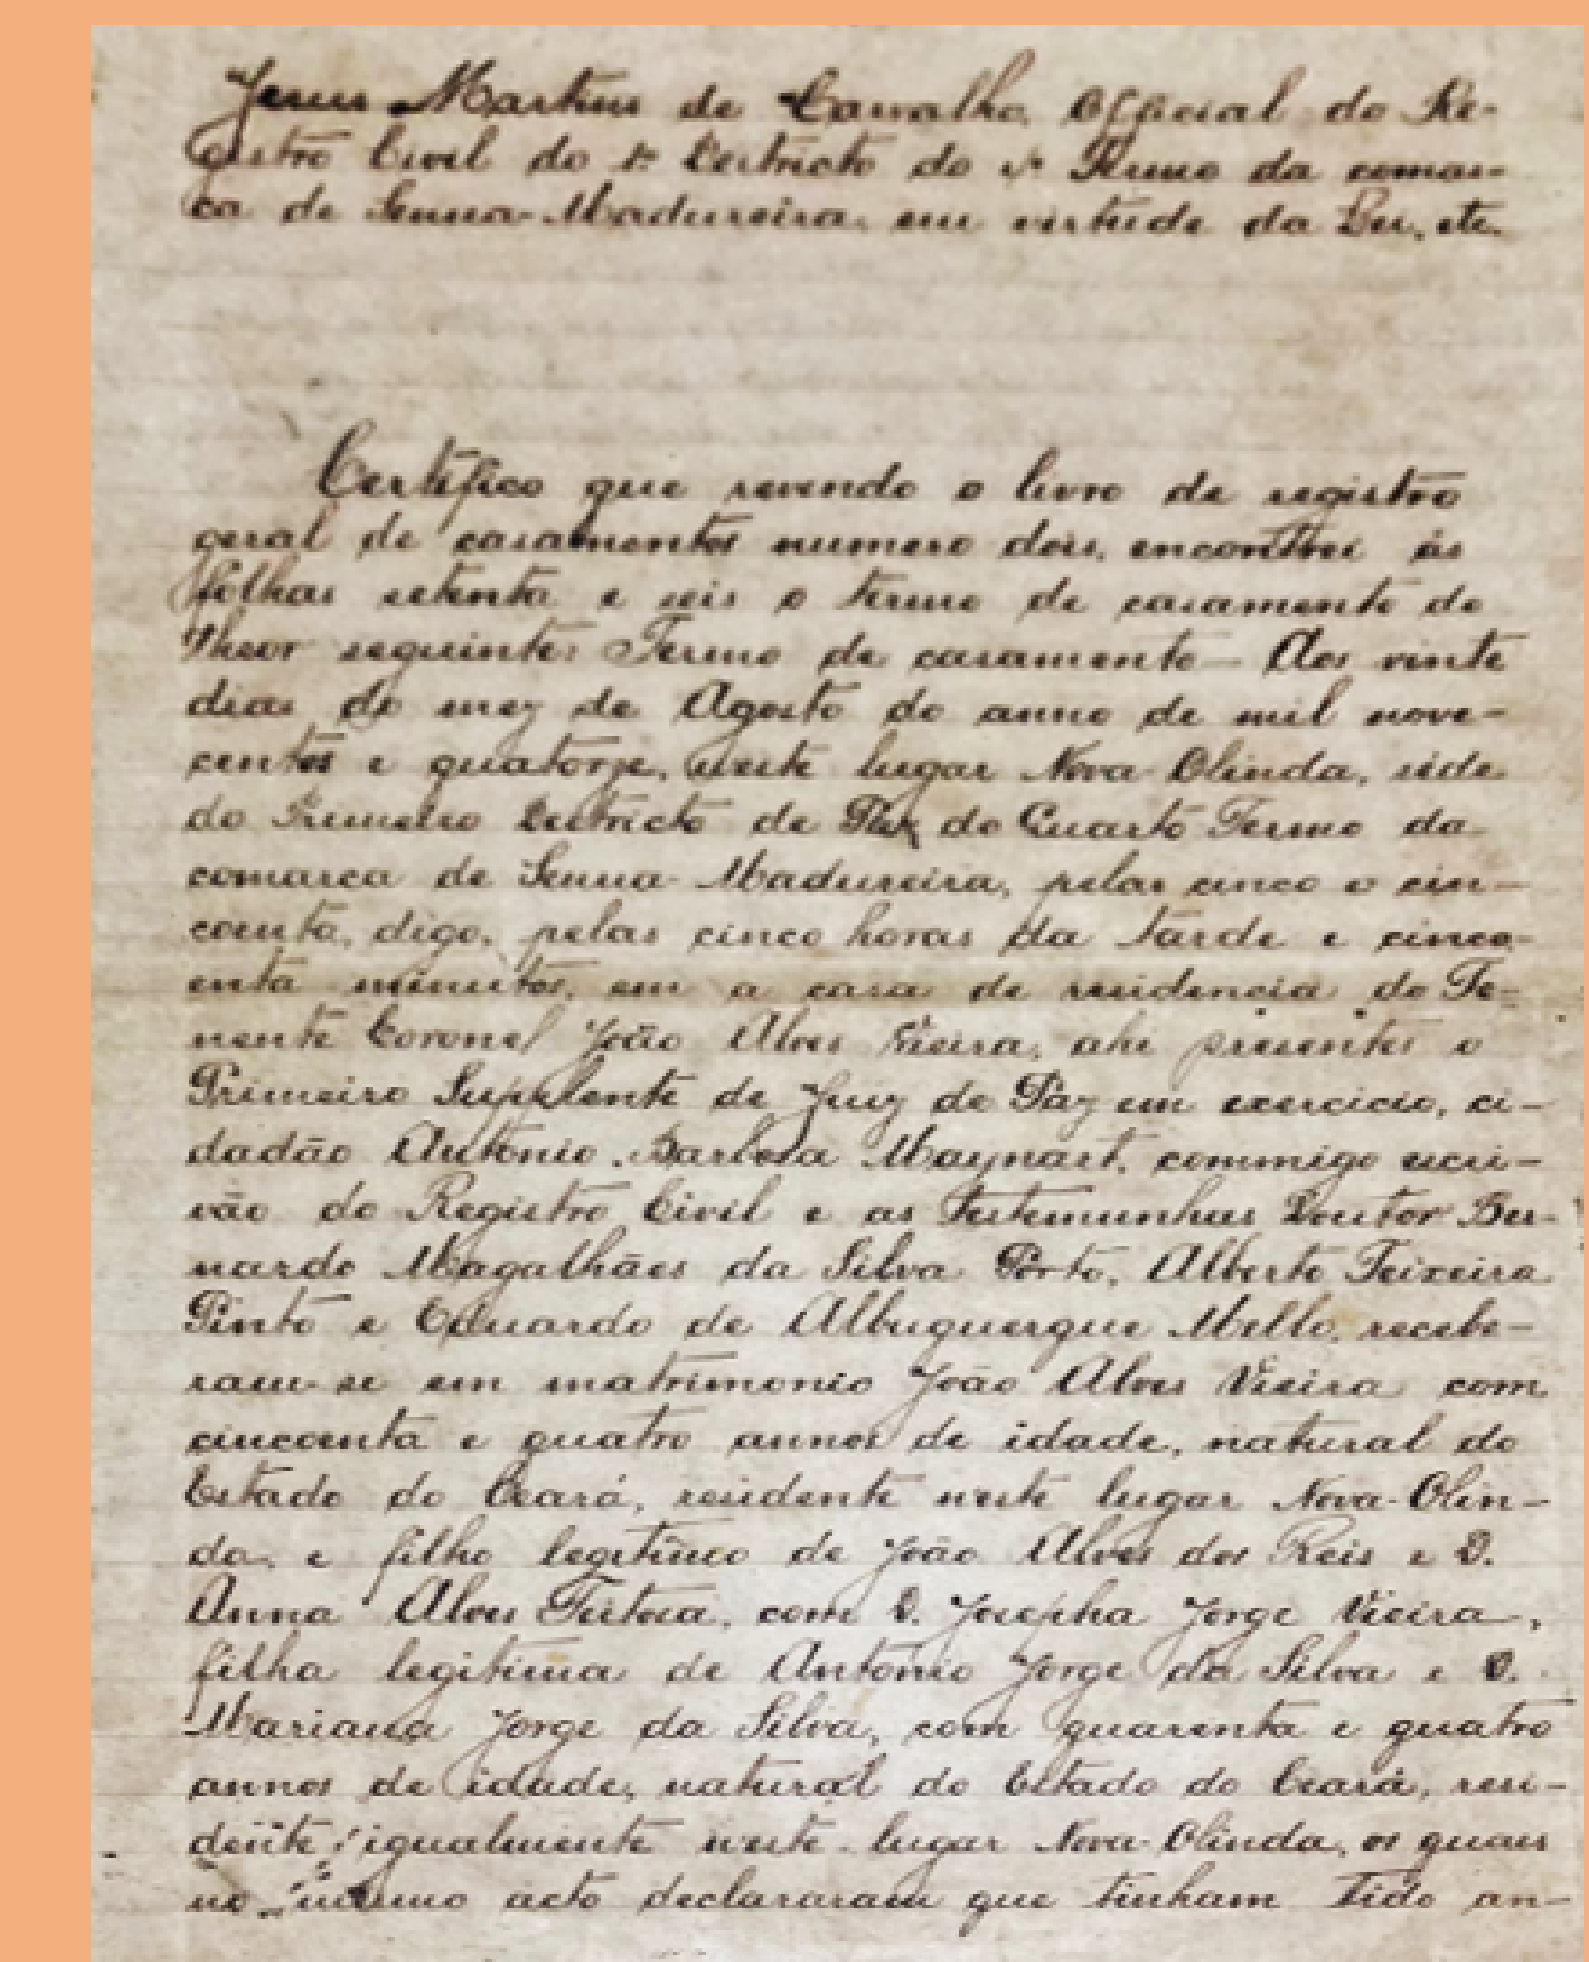 Jesus Martins de Carvalho, Official do Re-
gistro Civil do 1º Destricto do 4º Termo da comar-
ca de Senna-Madureira, em virtude da Lei, etc.
Certifico que revendo o livro de registro
geral de casamentos numero dois, encontrei ás
folhas setenta e seis o termo de casamento do
theor seguinte: Termo de casamento — Aos vinte
dias do mez de Agosto do anno de mil nove-
centos e quatorze, neste lugar Nova-Olinda, séde
do Primeiro Destricto de Paz do Quarto Termo da
comarca de Senna-Madureira, pelas cinco e cin-
coenta, digo, pelas cinco horas da tarde e cinco-
enta minutos, em a casa de residencia do Te-
nente Coronel João Alves Vieira, ahi presentes o
Primeiro Supplente de Juiz de Paz em exercicio, ci-
dadão Antonio Barbosa Maynart, commigo escri-
vão do Registro Civil e as testemunhas Doutor Ber-
nardo Magalhães da Silva Porto, Alberto Teixeira
Pinto e Eduardo de Albuquerque Mello, recebe-
ram-se em matrimonio João Alves Vieira com
cincoenta e quatro annos de idade, natural do
Estado do Ceará, residente neste lugar Nova-Olin-
da, e filho legitimo de João Alves dos Reis e D.
Anna Alves Feitosa, com D. Josepha Jorge Vieira,
filha legitima de Antonio Jorge da Silva e D.
Mariana Jorge da Silva, com quarenta e quatro
annos de idade, natural do Estado do Ceará, resi-
dente igualmente neste lugar Nova-Olinda, os quais
no mesmo acto declararam que tinham tido an-